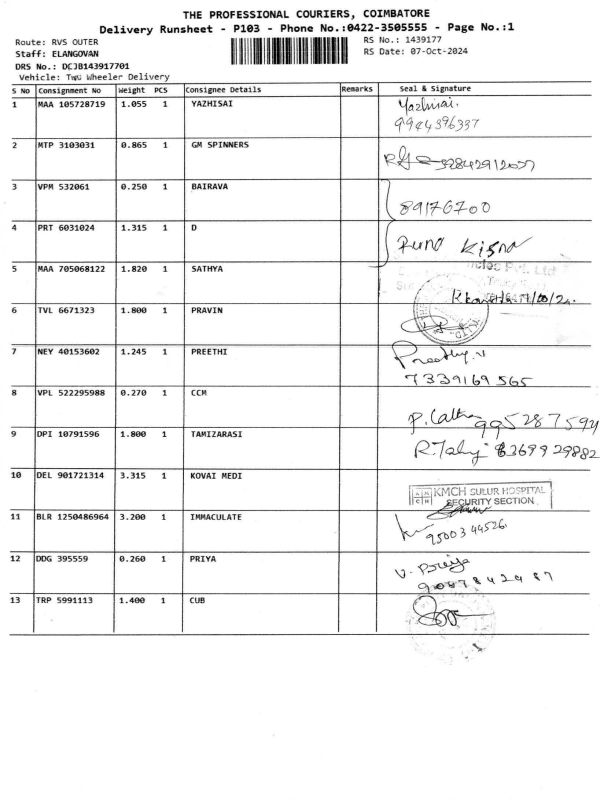 THE PROFESSIONAL COURIERS, COIMBATORE
Delivery Runsheet - P103 - Phone No.:0422-3505555 - Page No.:1
Route: RVS OUTER
RS No.: 1439177
Staff: ELANGOVAN
RS Date: 07-Oct-2024
DRS No.: DCJB143917701
Vehicle: Two Wheeler Delivery
S No Consignment No Weight PCS Consignee Details Remarks Seal & Signature
1 MAA 105728719 1.055 1 YAZHISAI Yazhisai.
9944396337
2 MTP 3103031 0.865 1 GM SPINNERS
3 VPM 532061 0.250 1 BAIRAVA
89176700
4 PRT 6031024 1.315 1 D
5 MAA 705068122 1.820 1 SATHYA
Pvt. Ltd
6 TVL 6671323 1.800 1 PRAVIN
7 NEY 40153602 1.245 1 PREETHI Preethy.V
7339169565
8 VPL 522295988 0.270 1 CCM
P. Latha 995287594
9 DPI 10791596 1.800 1 TAMIZARASI
10 DEL 901721314 3.315 1 KOVAI MEDI
KMCH SULUR HOSPITAL
SECURITY SECTION
11 BLR 1250486964 3.200 1 IMMACULATE
9500344526
12 DDG 395559 0.260 1 PRIYA V. Priya
9087842487
13 TRP 5991113 1.400 1 CUB